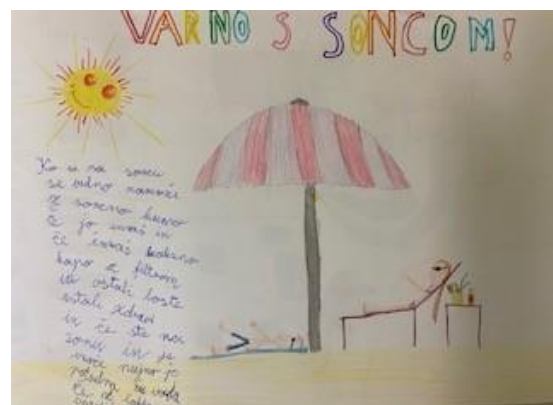 VARNO S SONCOM!
Ko si na soncu
se vedno namaži
s sončno kremo
če jo imaš in
če imaš
kapo z filtrom
ostali boste
ostali zdravi
in če ste na
soncu in je
vroče nujno je
potrebna voda